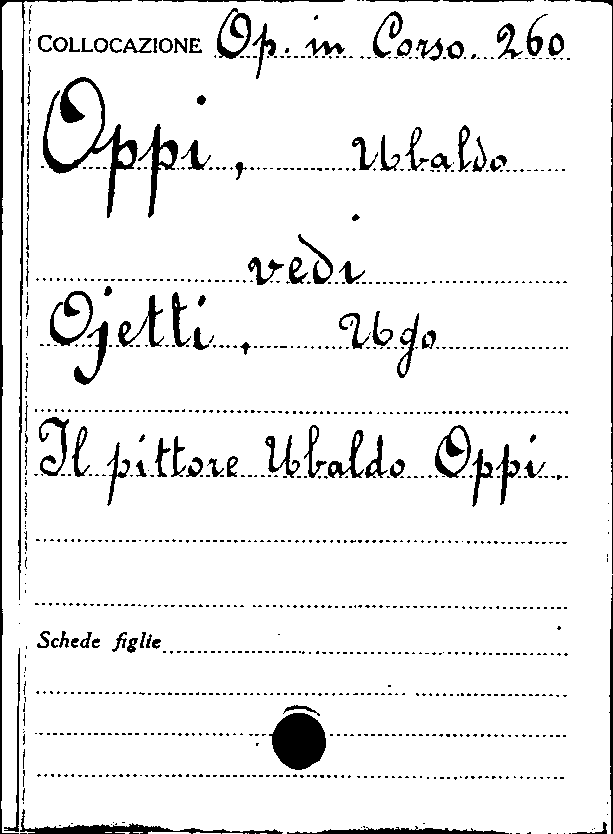 COLLOCAZIONE Op. in Corso. 260
Oppi, Ubaldo
vedi
Ojetti, Ugo
Il pittore Ubaldo Oppi.
Schede figlie